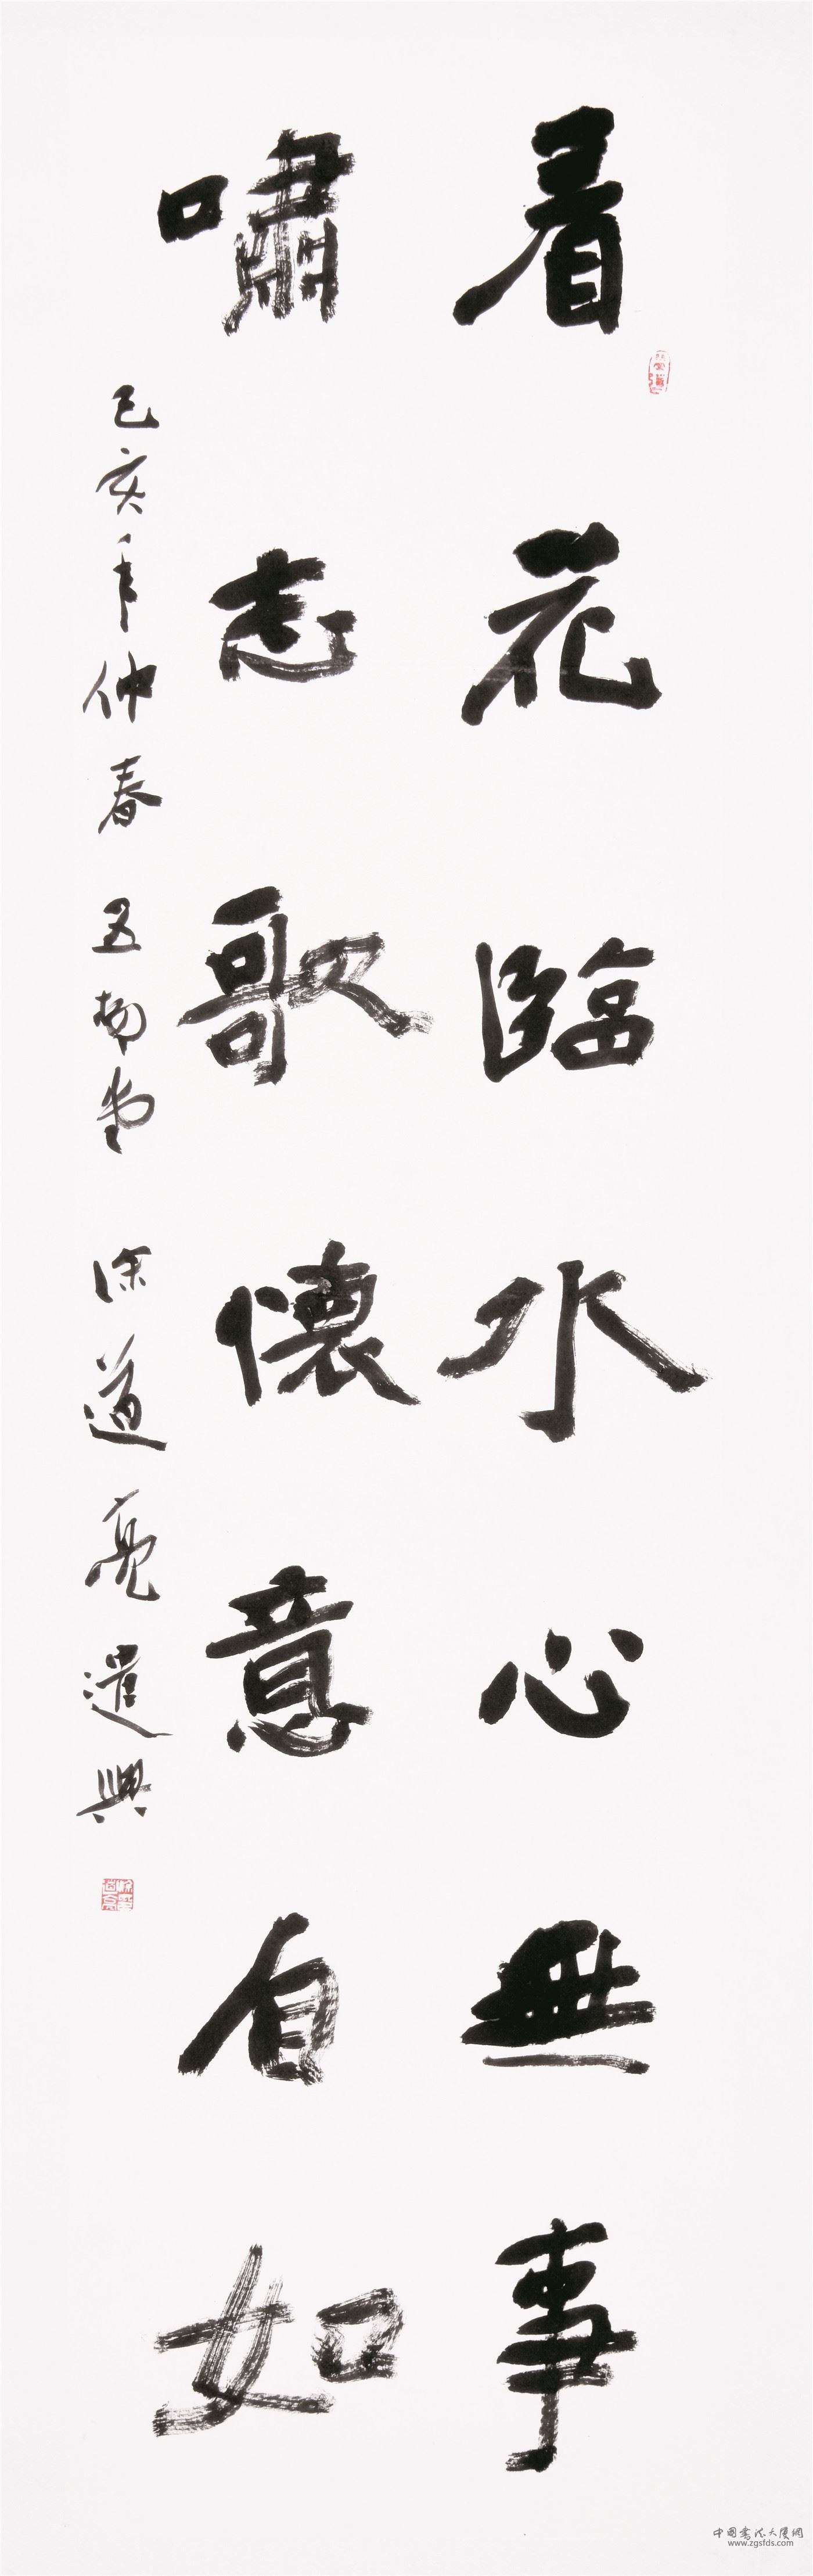 看花臨水心無事
嘯志歌懷意自如
己亥年仲春 五柳堂 涂道亮遣興
中國書法大廈網
www.zgsfds.com